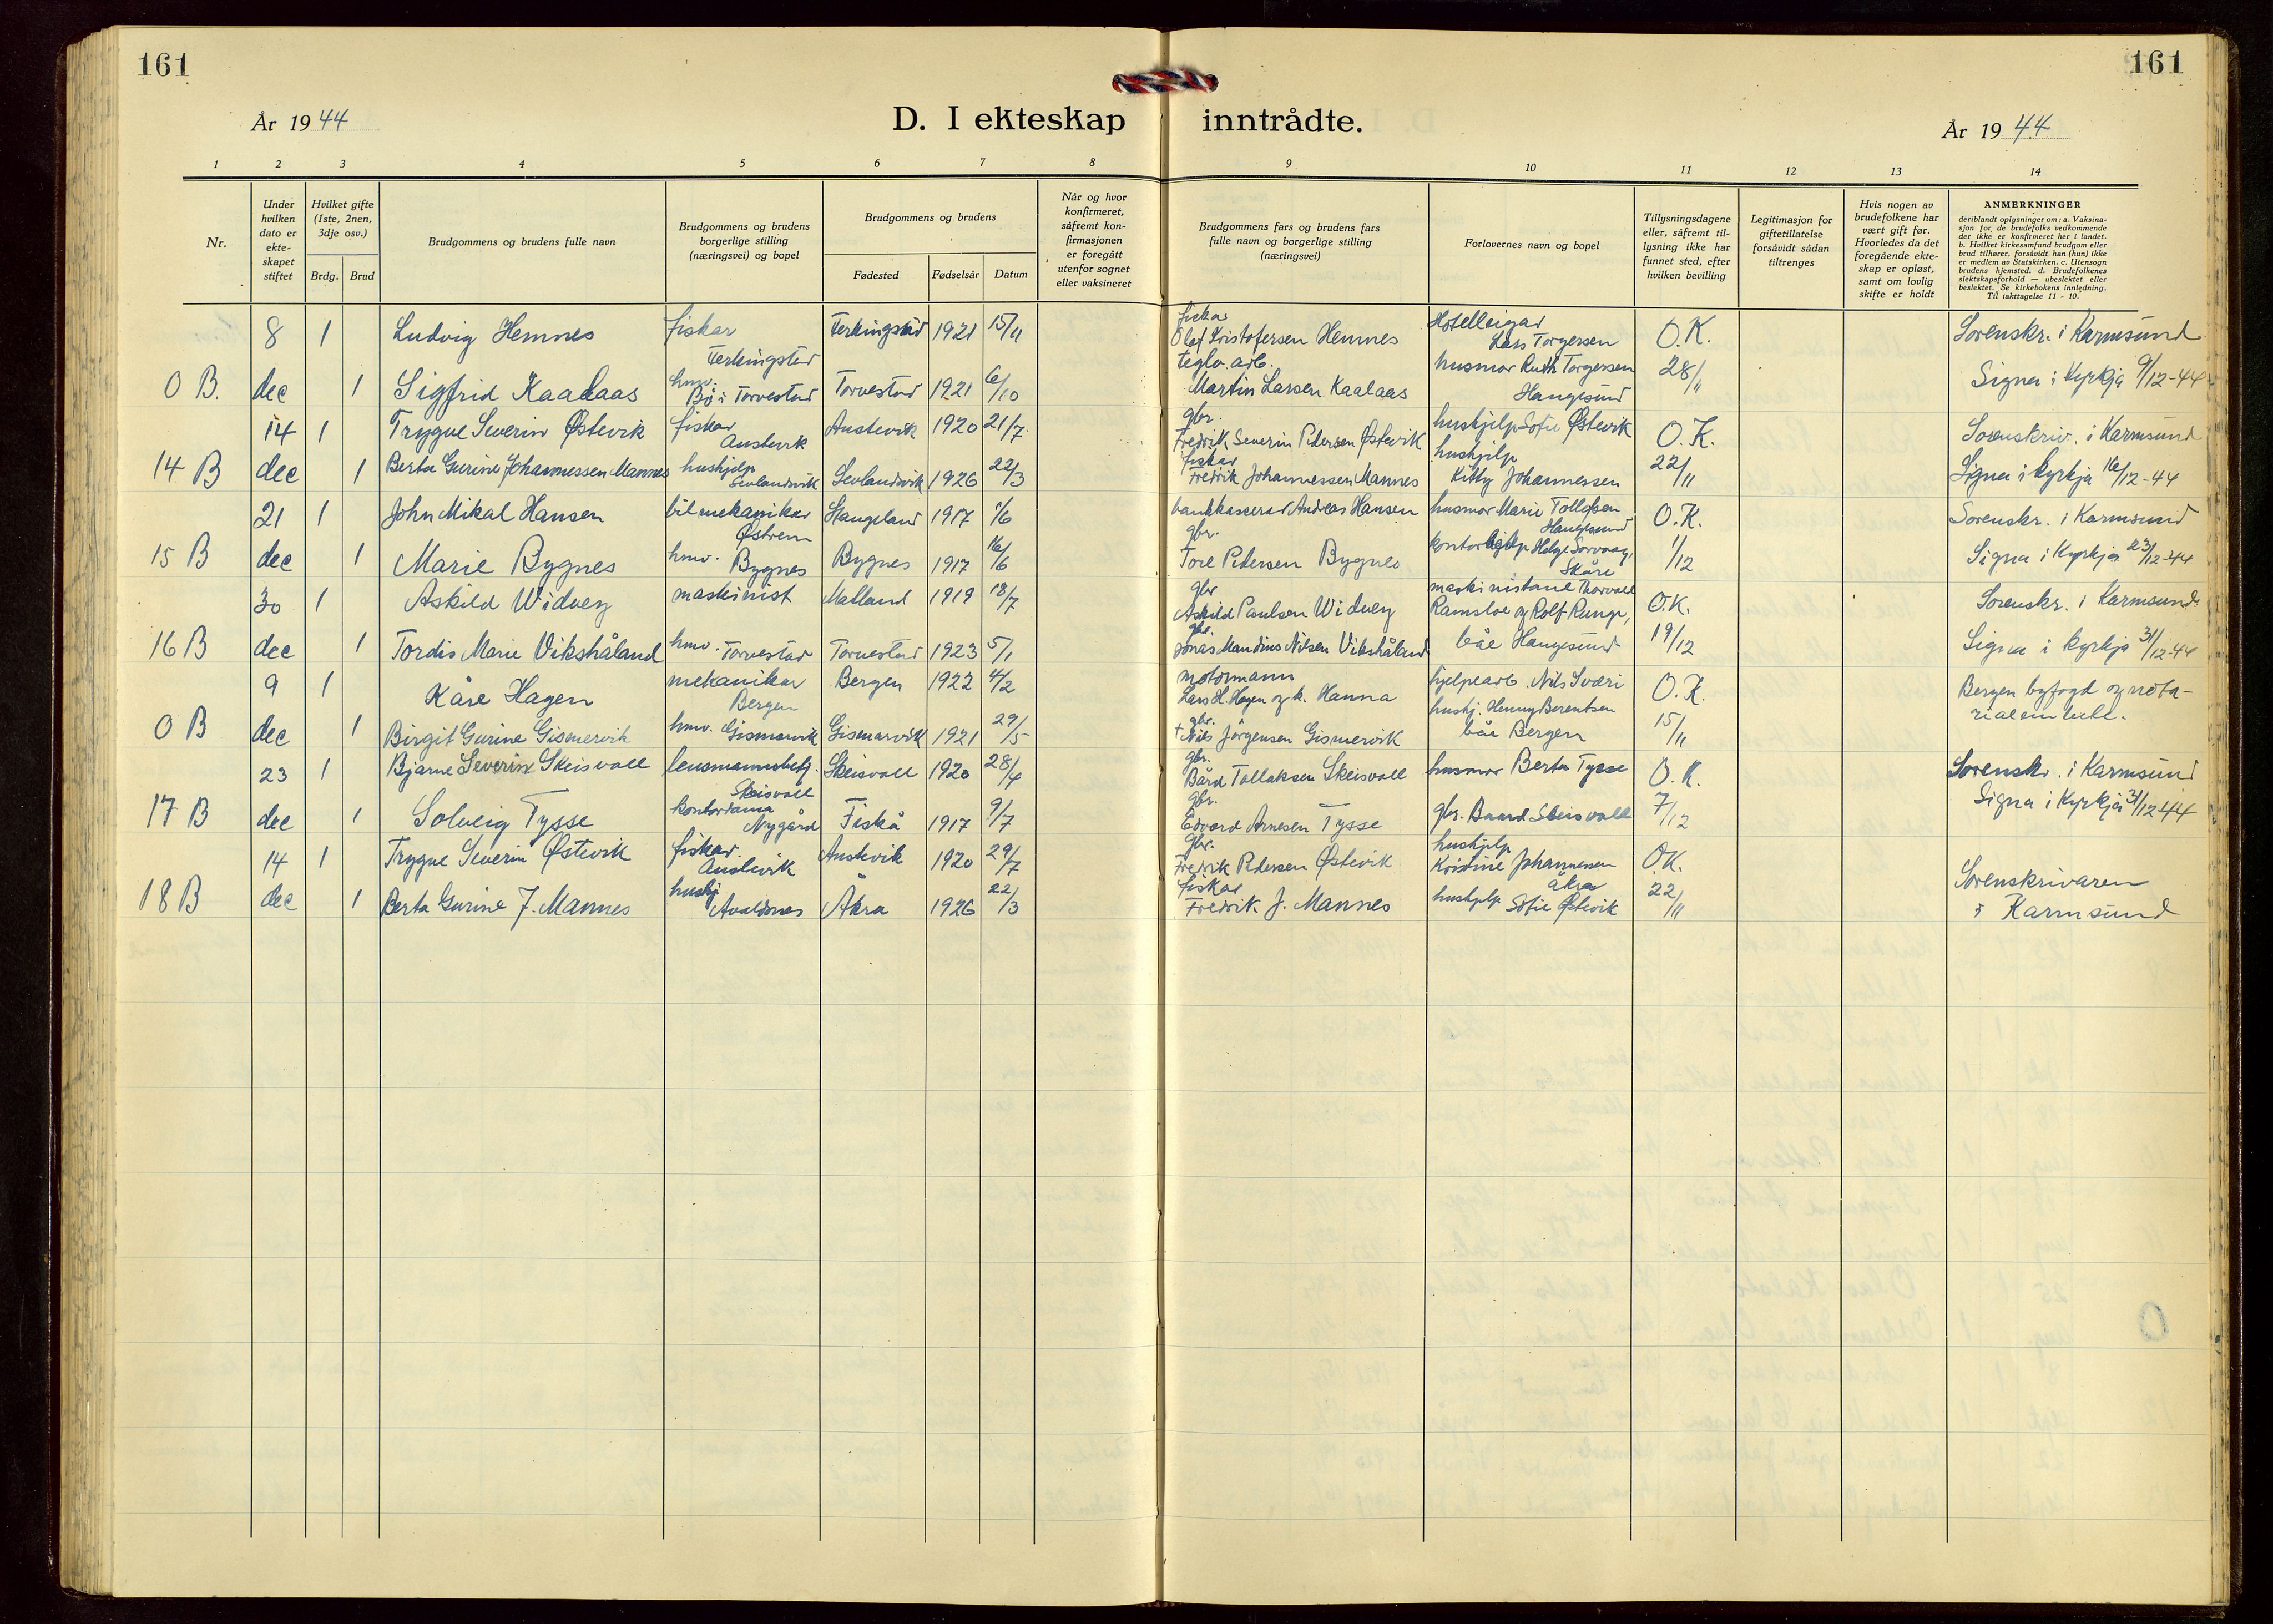 161
161
År 1944
D. I ekteskap inntrådte.
År 1944
1 2 3 4 5 6 7 8 9 10 11 12 13 14
Nr.
Under hvilken dato er ekte-skapet stiftet
Hvilket gifte (1ste, 2nen, 3dje osv.)
Brdg. Brud
Brudgommens og brudens fulle navn
Brudgommens og brudens borgerlige stilling (næringsvei) og bopel
Brudgommens og brudens
Fødested Fødselsår Datum
Når og hvor konfirmeret, såfremt kon-firmasjonen er foregått utenfor sognet eller vaksineret
Brudgommens fars og brudens fars fulle navn og borgerlige stilling (næringsvei)
Forlovernes navn og bopel
Tillysningsdagene eller, såfremt til-lysning ikke har funnet sted, efter hvilken bevilling
Legitimasjon for giftetillatelse forsåvidt sådan tiltrenges
Hvis nogen av brudefolkene har vært gift før. Hvorledes da det foregående ekte-skap er opløst, samt om lovlig skifte er holdt
ANMERKNINGER
deriblandt oplysninger om: a. Vaksina-
sjon for de brudefolks vedkommende
der ikke er konfirmeret her i landet.
b. Hvilket kirkesamfund brudgom eller
brud tilhører, forsåvidt han (hun) ikke
er medlem av Statskirken. c. Utensogn
brudens hjemsted. d. Brudefolkenes
slektskapsforhold — ubeslektet eller
beslektet. Se kirkebokens innledning.
Til iakttagelse 11 - 10.
8 1 Ludvig Hemnes fiskar Ferkingstad Ferkingstad 1921 15/11 fiskar Olaf Kristofersen Hemnes Hotelleigar Lars Torgersen O.K. Sorenskr. i Karmsund
0 B. dec 1 Sigfrid Kaalaas hmv. Bø i Torvestad Torvestad 1921 6/10 teglv. arb. Martin Larsen Kaalaas husmor Ruth Torgersen Haugesund 28/11 Signa i Kyrkja 9/12-44
14 1 Trygve Severin Østevik fiskar Austevik Austevik 1920 21/7 gbr. Fredrik Severin Pedersen Østevik hushjelp Sofie Østevik O.K. Sorenskriv. i Karmsund
14 B dec 1 Berta Gurine Johannessen Mannes hushjelp Sevlandsvik Sevlandsvik 1926 22/3 fiskar Fredrik Johannessen Mannes hushjelp Kitty Johannessen 22/11 Signa i kyrkja 16/12-44
21 1 John Mikal Hansen bilmekanikar Østrem Stangeland 1917 1/6 bankkasserar Andreas Hansen husmor Marie Tollefsen Haugesund O.K. Sorenskr. i Karmsund
15 B dec 1 Marie Bygnes hmv. Bygnes Bygnes 1917 16/6 gbr. Tore Pedersen Bygnes kontorhjelp Helge Sørvaag, Skåre 1/12 Signa i Kyrkja 23/12-44
30 1 Askild Widvey maskinist Matland 1919 18/7 gbr Askild Paulsen Widvey maskinistane Thorvald Ramsloe og Rolf Runge, O.K. Sorenskr. i Karmsund
16 B dec 1 Tordis Marie Vikshåland hmv. Torvestad Torvestad 1923 5/1 gbr. Jonas Mandius Nilsen Vikshåland båe Haugesund 19/12 Signa i kyrkja 31/12-44
9 1 Kåre Hagen mekanikar Bergen Bergen 1922 4/2 motormann Lars H. Hagen og k. Hanna hjelpearb. Nils Sværi O.K. Bergen byfogd og nota-
0 B dec 1 Birgit Gurine Gismervik hmv. Gismarvik Gismarvik 1921 29/5 gbr. † Nils Jørgensen Gismervik hushj. Henny Berentsen båe Bergen 15/11 rialembete.
23 1 Bjarne Severin Skeisvoll lensmannsbetj. Skeisvoll Skeisvoll 1920 28/4 gbr. Bård Tollaksen Skeisvoll husmor Berta Tysse O.K. Sorenskr. i Karmsund
17 B dec 1 Solveig Tysse kontordama Nygård Fiskå 1917 9/7 gbr. Edvard Arnesen Tysse gbr. Baard Skeisvoll 7/12 Signa i Kyrkja 31/12 44
14 1 Trygve Severin Østevik fiskar Austevik Austevik 1920 29/7 gbr. Fredrik Pedersen Østevik hushjelp Kristine Johannessen Åkra O.K. Sorenskrivaren
18 B dec 1 Berta Gurine J. Mannes hushj Avaldsnes Åkra 1926 22/3 fiskar Fredrik J. Mannes hushjelp Sofie Østevik 22/11 i Karmsund